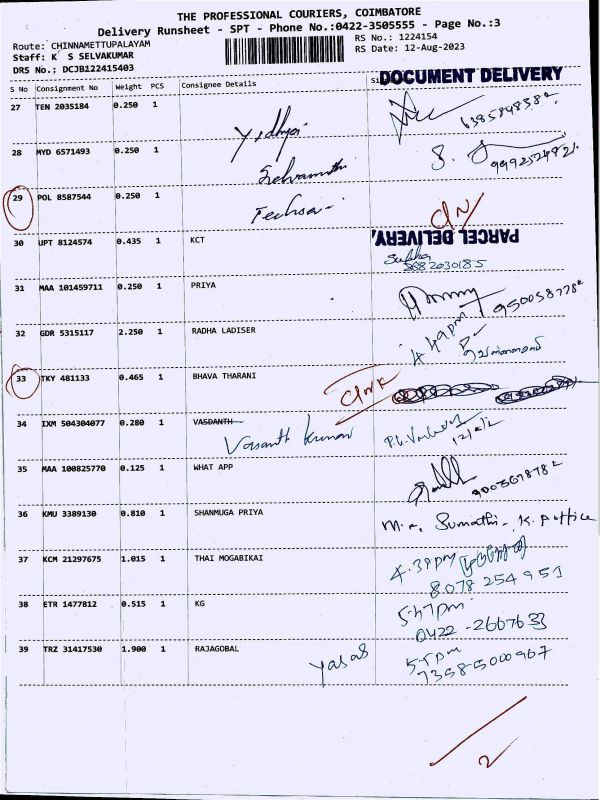 THE PROFESSIONAL COURIERS, COIMBATORE
Delivery Runsheet - SPT - Phone No.:0422-3505555 - Page No.:3
Route: CHINNAMETTUPALAYAM RS No.: 1224154
Staff: K S SELVAKUMAR RS Date: 12-Aug-2023
DRS No.: DCJB122415403
DOCUMENT DELIVERY
S No Consignment No Weight PCS Consignee Details
27 TEN 2035184 0.250 1
28 MYD 6571493 0.250 1
Selvamuthi
29 POL 8587544 0.250 1
PARCEL DELIVERY,
30 UPT 8124574 0.435 1 KCT
31 MAA 101459711 0.250 1 PRIYA
32 GDR 5315117 2.250 1 RADHA LADISER
4.49pm
33 TKY 481133 0.465 1 BHAVA THARANI
34 IXM 504304077 0.280 1 VASDANTH
Vasanth kumar
35 MAA 100825770 0.125 1 WHAT APP
36 KMU 3389130 0.810 1 SHANMUGA PRIYA
Sumathi
37 KCM 21297675 1.015 1 THAI MOGABIKAI
4.39pm
8078 254 951
38 ETR 1477812 0.515 1 KG
5.47pm
0422 - 2667633
39 TRZ 31417530 1.900 1 RAJAGOBAL
yasas
73585000967
2